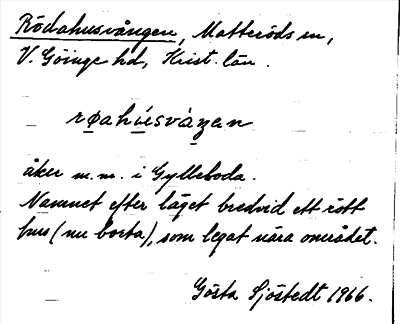 Rödahusvången, Matteröds sn,
V. Göinge hd, Krist. län.
røahúesvàŋen
åker m.m. i Gylleboda.
Namnet efter läget bredvid ett rött
hus (nu borta), som legat nära området.
Gösta Sjöstedt 1966.